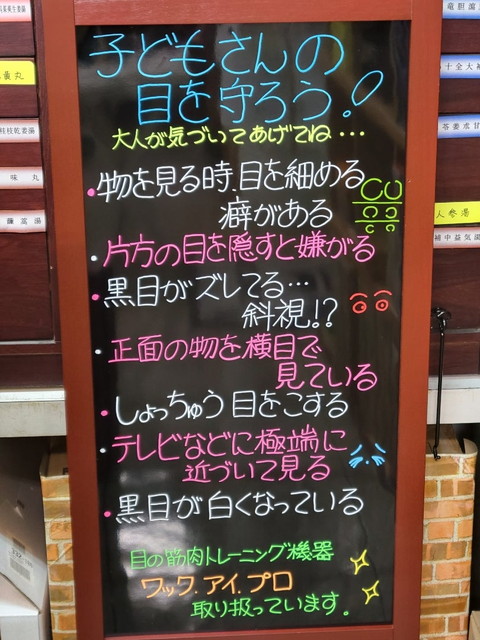 子どもさんの
目を守ろう!
大人が気づいてあげてね…
・物を見る時、目を細める
癖がある
・片方の目を隠すと嫌がる
・黒目がズレてる…
斜視!?
・正面の物を横目で
見ている
・しょっちゅう目をこする
・テレビなどに極端に
近づいて見る
・黒目が白くなっている
目の筋肉トレーニング機器
ワック.アイ.プロ
取り扱っています。
桂枝乾姜湯
人参湯
補中益気湯